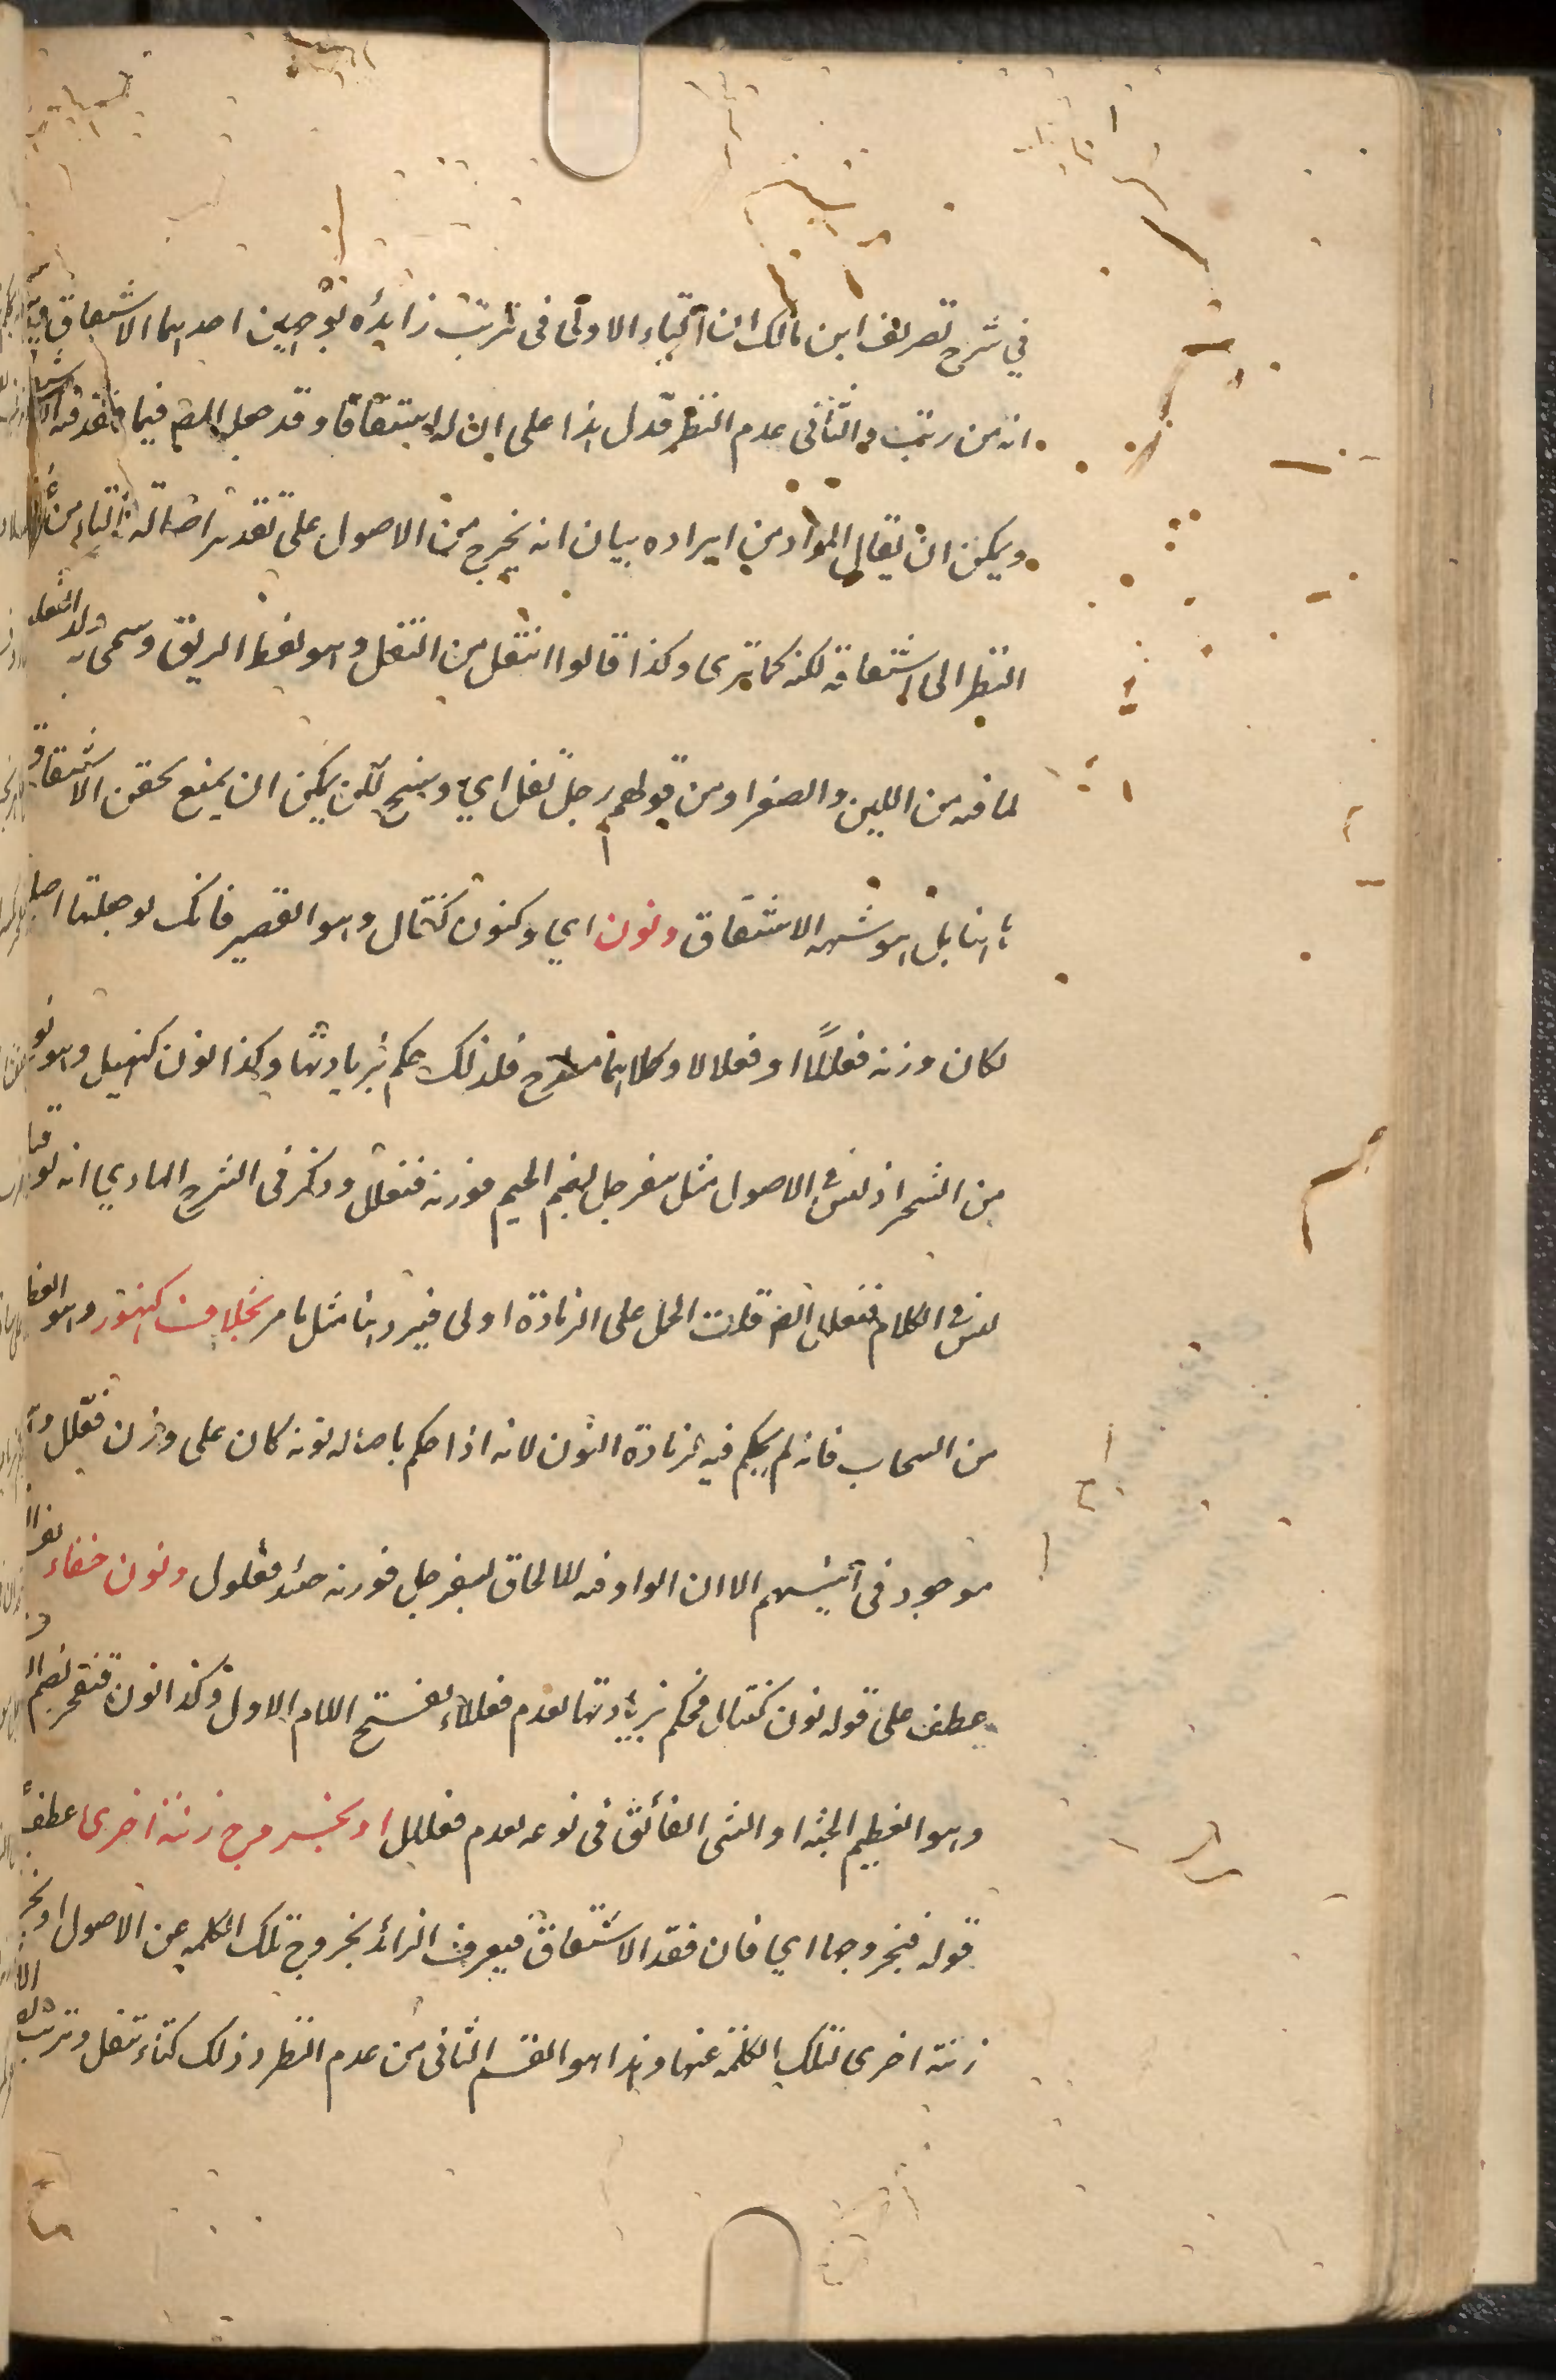 في شرح تصريف ابن مالك ان التاء الاولى فى ترتب زايدة بوجهين احدهما الاشتقاق
انه من رتب والثانى عدم النظير فدل هذا على ان له اشتقاقا وقد جعل المص فيما فقد فيه
ويمكن ان يقال المراد من ايراده بيان انه يخرج من الاصول على تقدير اصالة التاء من
النظر الى اشتقاقه لكنه كما ترى وكذا قالوا انتفل من التفل وهو لفظ الريق وسمى به ولد الثعلب
لما فيه من اللين والصغر او من قولهم رجل تفل اي وسخ لكن يمكن ان يمنع تحقق الاشتقاق
هنا بل هو شبهه الاشتقاق ونون اي وكنون كنتأل وهو القصير فانك لو جعلتها
لكان وزنه فعللّا او فعلالا وكلاهما خارج فلذلك حكم بزيادتها وكذا نون كنهبل وهو
من الشجر اذ ليس في الاصول مثل سفرجل بضم الجيم فوزنه فنعلل وذكر فى الشرح الهادي انه لو
ليس في الكلام فنعلل ايضا قلت الحمل على الزيادة اولى فيرد هنا مثل ما مر بخلاف كنهور وهو
من السحاب فانه لم يحكم فيه بزيادة النون لانه اذا حكم باصالة نونه كان على وزن فعلل
موجود فى ابنيتهم الا ان الواو فيه للالحاق بسفرجل فوزنه حينئذ فعلول ونون خنفساء
عطف على قوله نون كنتأل فحكم بزيادتها لعدم فعللاء بفتح اللام الاول وكذا نون قنفخر بضم
وهو العظيم الجثة او الشى الفائق فى نوعه لعدم فعلل او بخروج زنة اخرى عطف
قوله فبخروجها اي فان فقد الاشتقاق فيعرف الزائد بخروج تلك الكلمة عن الاصول او
زنة اخرى لتلك الكلمة عنها وهذا هو القسم الثانى من عدم النظير وذلك كتاء تتفل وترتب